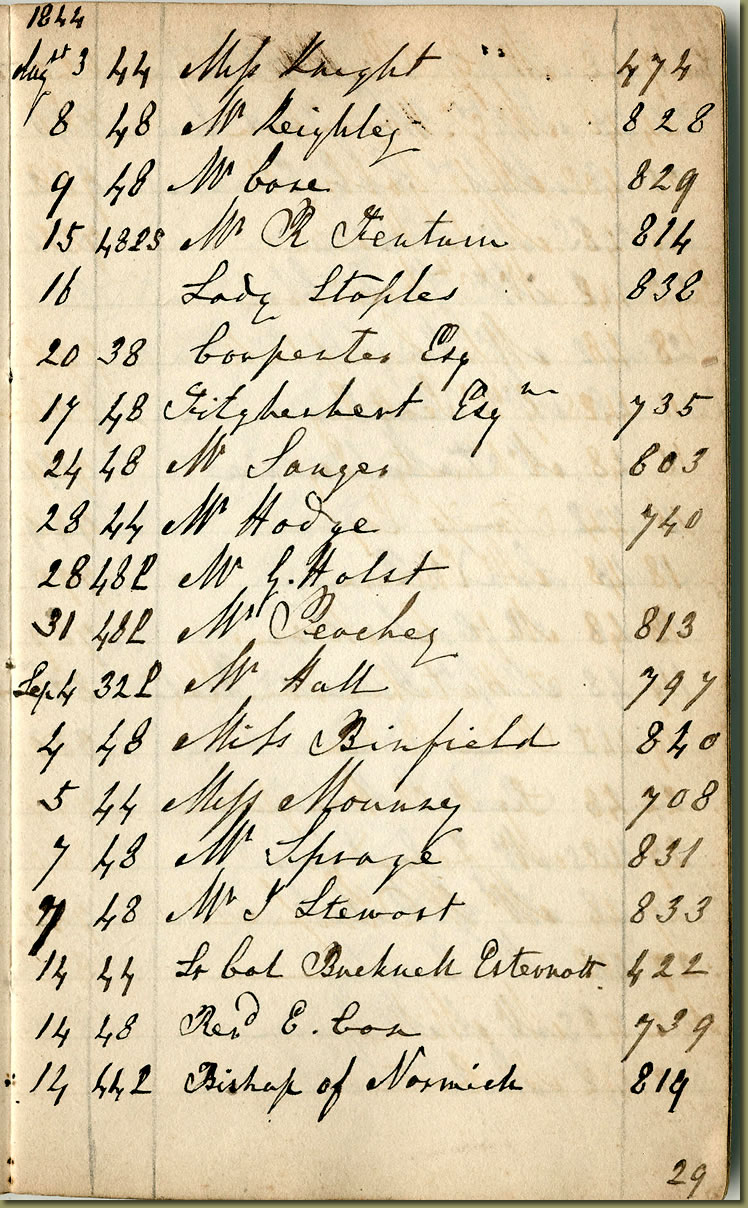 1844
Augst 3 44 Miss Knight 474
8 48 Mr Keighley 828
9 48 Mr Cone 829
15 482S Mr R Fentum 814
16 Lady Staples 838
20 38 Carpenter Esq
17 48 Fitzherbert Esqre 735
24 48 Mr Sanger 803
28 44 Mr Hodge 740
28 48P Mr G. Holst
31 48P Mr Peachey 813
Sep 4 32P Mr Hall 797
4 48 Miss Binfield 840
5 44 Miss Mounsey 708
7 48 Mr Sprage 831
7 48 Mr J Stewart 833
14 44 Lt Col Bucknell Estcourt 422
14 48 Revd E. Cox 739
14 44P Bishop of Norwich 819
29